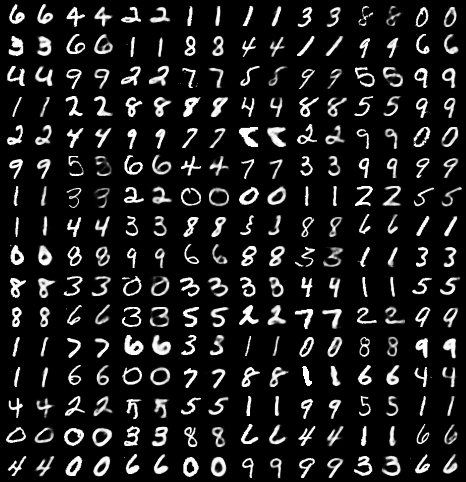 6 6 4 4 2 2 1 1 1 1 3 3 8 8 0 0
3 3 6 6 1 1 8 8 4 4 1 1 9 9 6 6
4 4 9 9 2 2 7 7 5 8 9 9 5 5 9 9
1 1 2 2 8 8 8 8 4 4 8 8 5 5 9 9
2 2 4 4 9 9 7 7 2 2 9 9 0 0
9 9 5 5 6 6 4 4 7 7 3 3 9 9 9 9
1 1 3 3 2 2 0 0 0 0 1 1 2 2 5 5
1 1 4 4 3 3 8 8 3 3 8 8 6 6 1 1
0 0 8 8 9 9 6 6 8 8 3 3 1 1 3 3
8 8 3 3 0 0 3 3 3 3 4 4 1 1 5 5
8 8 6 6 3 3 5 5 2 2 7 7 2 2 9 9
1 1 7 7 6 6 3 3 1 1 0 0 8 8 9 9
1 1 6 6 0 0 7 7 8 8 1 1 6 6 4 4
4 4 2 2 5 5 1 1 9 9 5 5 1 1
0 0 0 0 3 3 8 8 6 6 4 4 1 1 6 6
4 4 0 0 6 6 0 0 9 9 9 9 3 3 6 6